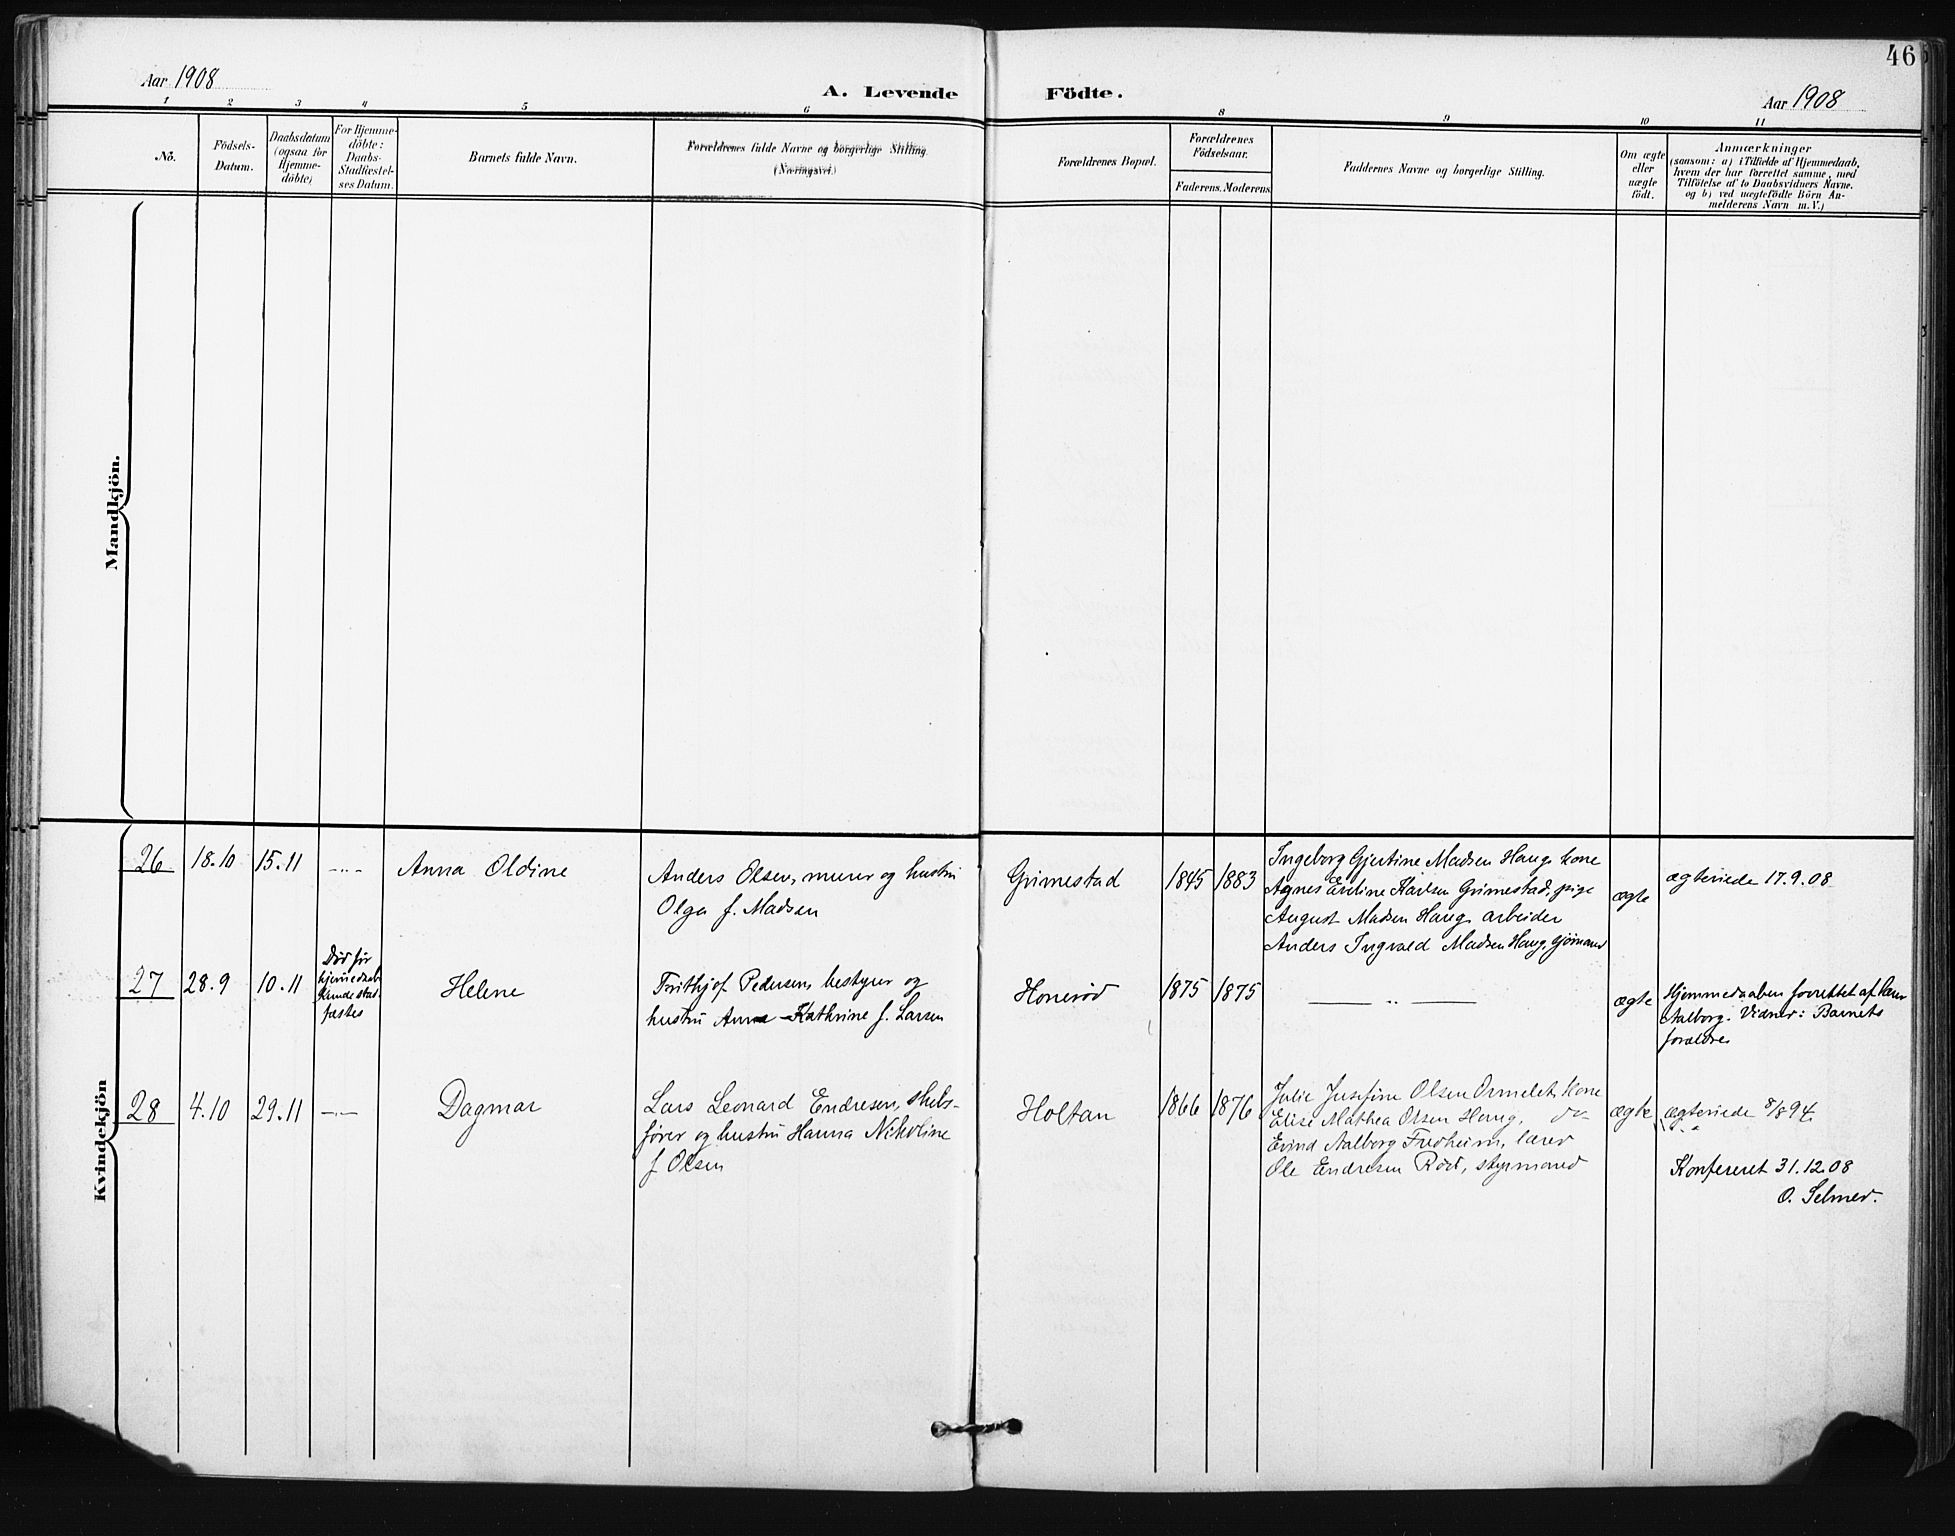 46
Aar 1908
A. Levende Födte.
Aar 1908
1 2 3 4 5 6 8 9 10 11
No.
Födsels-
Datum.
Daabsdatum
(ogsaa for
Hjemme-
döbte)
For Hjemme-
döbte:
Daabs-
Stadfæstel-
ses Datum.
Barnets fulde Navn.
Forældrenes fulde Navne og borgerlige Stilling
(Næringsvei.)
Forældrenes Bopæl.
Forældrenes
Födselsaar.
Faderens. Moderens.
Faddernes Navne og borgerlige Stilling.
Om ægte
eller
uægte
födt.
Anmærkninger
(saasom: a) i Tilfælde af Hjemmedaab,
hvem der har forrettet samme, med
Tilföielse af to Daabsvidners Navne.
og b) ved uægtefödte Börn An-
melderens Navn m. V.)
Mandkjön.
Kvindekjön
26
18.10
15.11
-"-
Anna Oldine
Anders Olsen, murer og hustru
Olga f. Madsen
Grimestad
1845
1883
Ingeborg Gjertine Madsen Haug, kone
Agnes Eveline Karlsen Grimestad, pige
August Madsen Haug, arbeider
Anders Ingvald Madsen Haug, sjömand
ægte
ægteviede 17.9.08
27
28.9
10.11
Död før
hjemmedaab
kunde stad-
fæstes
Helene
Frithjof Pedersen, bestyrer og
hustru Anna Kathrine f. Larsen
Honeröd
1875
1875
— " —
ægte
Hjemmedaaben forrettet af lærer
Aalborg. Vidner: Barnets
forældre
28
4.10
29.11
-"-
Dagmar
Lars Leonard Endresen, skibs-
fører og hustru Hanna Nikoline
f Olsen
Holtan
1866
1876
Julie Josefine Olsen Ormelet, kone
Elise Mathea Olsen Haug, do
Eivind Aalborg Fredheim, lærer
Ole Endresen Röd, styrmand
ægte
ægteviede 8/8 94
Konfereret 31.12.08
O. Selmer.